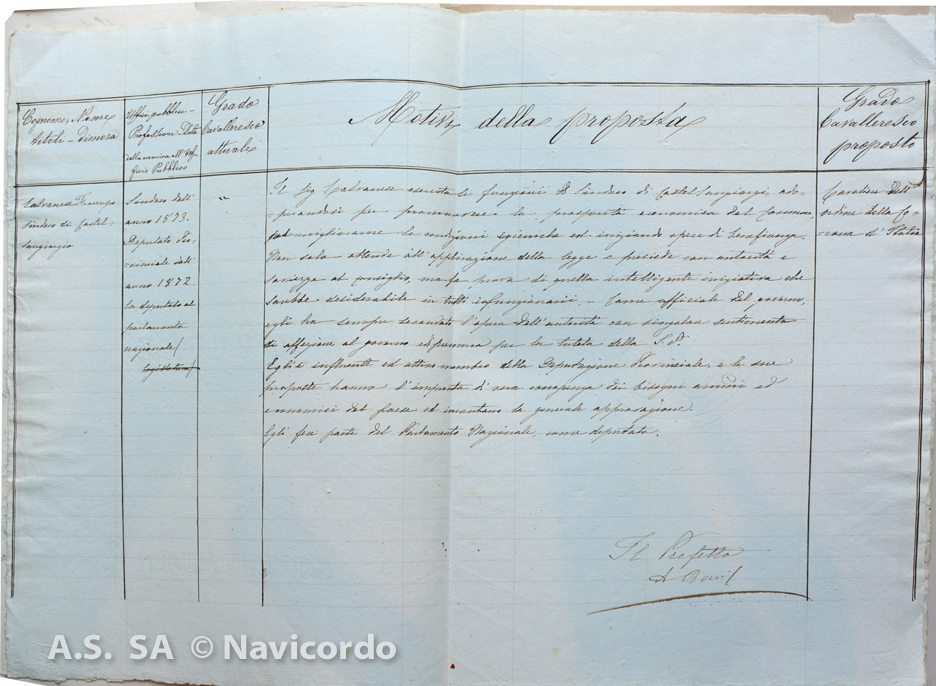 Cognome, Nome
titoli - dimora
Uffici pubblici -
Professione - Data
della nomina all' Uf-
ficio Pubblico
Grado
Cavalleresco
attuale
Motivi della proposta
Grado
Cavalleresco
proposto
Calvanese
Sindaco di Castel
Sangiorgio
Sindaco dell'
anno 1873.
Deputato Pro-
vinciale dall'
anno 1872.
deputato al
parlamento
nazionale/
legislatura/
"
Il Sig Calvanese esercita le funzioni di Sindaco di Castel Sangiorgi ado-
prandosi per promuovere la prosperità economica del paese,
migliorarne le condizioni igieniche ed iniziando opere di beneficenza.
Non solo attende all'applicazione della legge e presiede con autorità e
saviezza al consiglio, ma fa prova di quella intelligente iniziativa che
sarebbe desiderabile in tutti i funzionarii. - Come officiale del governo,
egli ha sempre secondato l'opera dell'autorità con singolare sentimento
di affezione al governo e premura per la tutela della S. P.
Egli è influente ed attivo membro della Deputazione Provinciale, e le sue
proposte hanno l'impronta di vera conoscenza dei bisogni ed
economici del paese ed incontrano la generale approvazione.
Egli fece parte del Parlamento Nazionale, come deputato.
Cavaliere dell'
ordine della Co-
rona d'Italia
Il Prefetto
A.S. SA © Navicordo